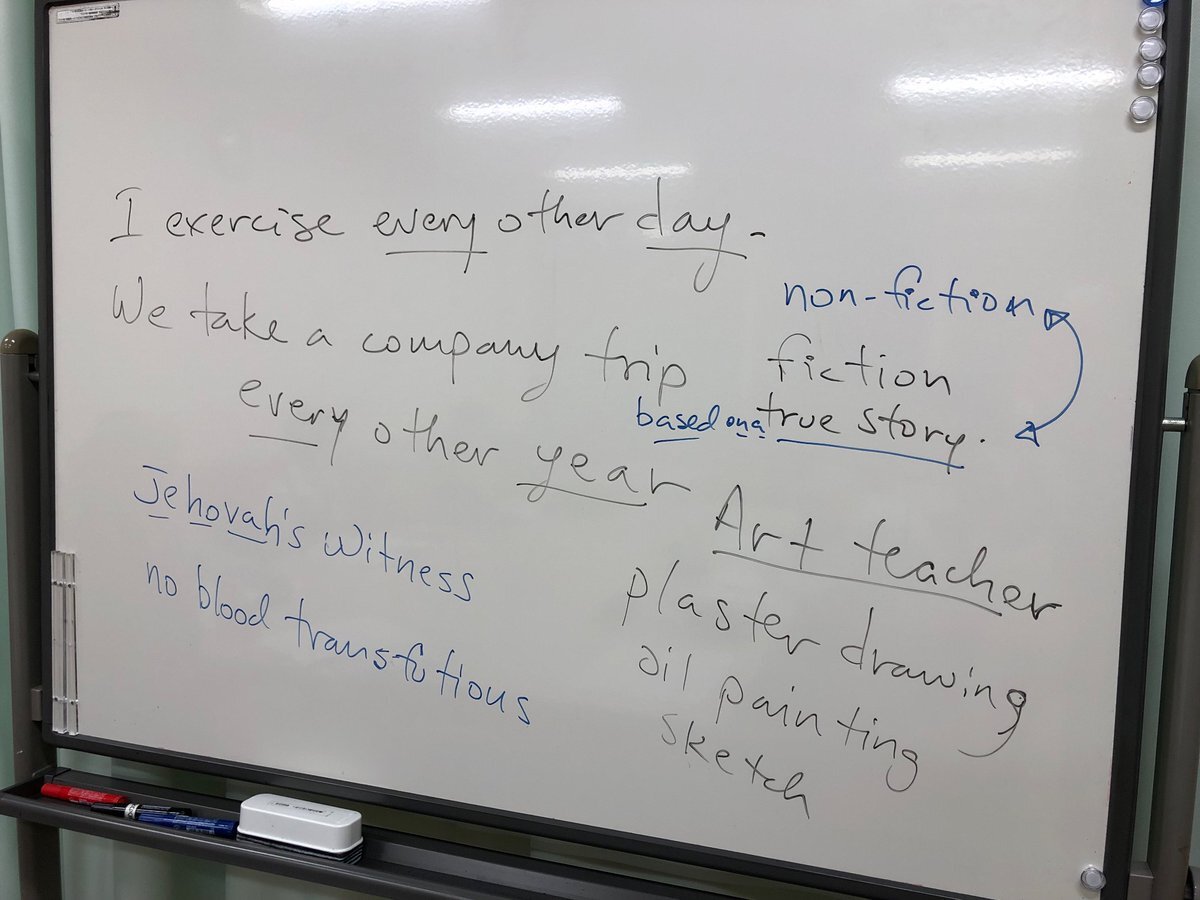 I exercise every other day.
We take a company trip
every other year
non-fiction
fiction
based on a true story.
Jehovah's witness
no blood
Art teacher
plaster drawing
oil painting
sketch